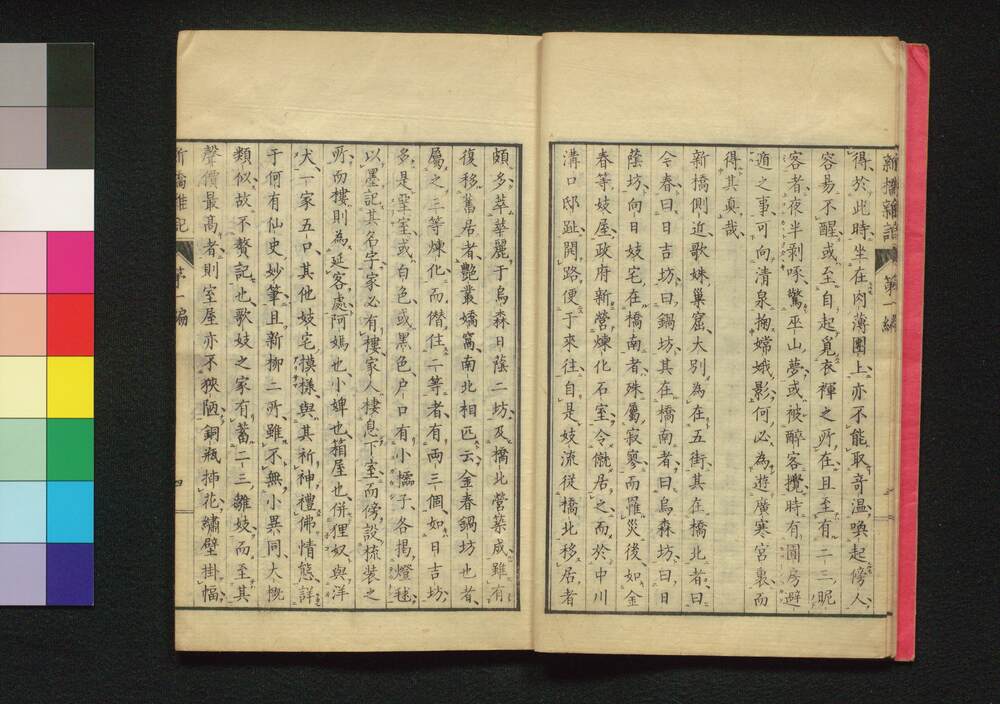 新橋雜記 第一編
得於此時坐在肉薄團上亦不能取奇温喚起傍人
容易不醒或至自起覓衣褌之所在且至有二三昵
客者夜半剥啄驚巫山夢或被醉客攪時有圓房避
遁之事可向清泉掬嫦娥影何必為遊廣寒宮裏而
得其真哉
新橋側近歌妹巢窟大別為在五街其在橋北者曰
今春曰日吉坊曰鍋坊其在橋南者曰烏森坊曰日
蔭坊向日妓宅在橋南者殊屬寂寥而罹災後如金
春等妓屋政府新營煉化石室令僦居之而於中川
溝口邸趾開路便于來往自是妓流從橋北移居者
頗多萃華麗于烏森日蔭二坊及橋北營築成雖有
復移舊居者艷叢嬌窩南北相匹云金春鍋坊也者
屬之三等煉化而僭住二等者有兩三個如日吉坊
多是堊室或白色或黑色户口有小櫺子各揭燈毬
以墨記其名字家必有樓家人棲息下室而傍設梳裝之
所而樓則為延客處阿媽也小婢也箱屋也併狸奴與洋
犬一家五口其他妓宅模樣與其祈神禮佛情態詳
于何有仙史妙筆且新柳二所雖不無小異同大概
類似故不贅記也歌妓之家有蓄二三雛妓而至其
聲價最高者則室屋亦不狹陋銅瓶插花繡壁掛幅
新橋雜記 第一編 四